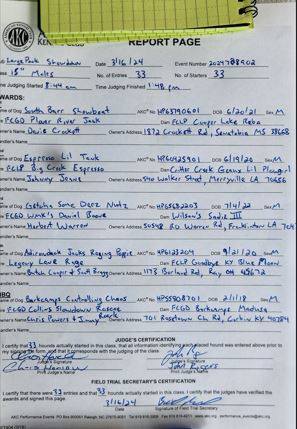 AKC
REPORT PAGE
Large Pack Showdown Date 3/16/24 Event Number 2024788902
Class 15" Males No. of Entries 33 No. of Starters 33
Time Judging Started 8:44 am Time Judging Finished 1:48 pm
AWARDS:
Name of Dog South Barr Showboat AKC® No. HP63790601 DOB 6/20/21 Sex M
FCGD Plover River Jack Dam FCLP Cuniper Lake Reba
Owner's Name Davis Crockett Owner's Address 1872 Crockett Rd, Senatobia MS 38668
Handler's Name
Name of Dog Espresso Lil Tank AKC® No. HP60425901 DOB 6/19/20 Sex M
FCLP Big Creek Espresso Dam Critter Creek Geans Lil Plowgirl
Owner's Name Johnny Jesne Owner's Address 540 Walker Street, Merryville LA 70656
Handler's Name
Name of Dog Getcha Some Deez Nutz AKC® No. HP65682203 DOB 7/4/22 Sex M
FCGD WMK's Daniel Boone Dam Wilson's Sadie III
Owner's Name Herbert Warren Owner's Address 30548 RD Warren Rd, Franklinton LA
Handler's Name
Name of Dog Adirondack Jacks Raging Poppie AKC® No. DOB 9/21/20 Sex M
Legacy Lane Rage Dam FCLP Goodbye KY Blue Moon
Owner's Name Butch Cooper & Scott Bragg Owner's Address 1178 Borland Rd, Ray OH 45672
Handler's Name
NBQ
Name of Dog Barkcamps Controlling Chaos AKC® No. HP55808701 DOB 2/1/18 Sex M
FCGD Collins Slowdown Roscoe Dam FCGD Barkcamps Madusa
Owner's Name Chris Powers & Jimmy Roark Owner's Address 701 Rosetown Ch Rd, Corbin KY 40384
Handler's Name
JUDGE'S CERTIFICATION
I certify that 33 hounds actually started in this class, that all information identifying each placed hound was entered above prior to
my signing the form, and that it corresponds with the judging of the class.
Judge's Signature Judge's Signature
John Rogers
Print Judge's Name Print Judge's Name
FIELD TRIAL SECRETARY'S CERTIFICATION
I certify that there were 33 entries and that 33 hounds actually started in this class. I certify that the judges have verified the
awards and signed this page.
3/16/24
Date Signature of Field Trial Secretary
AKC Performance Events PO Box 900051 Raleigh, NC 27675-9051